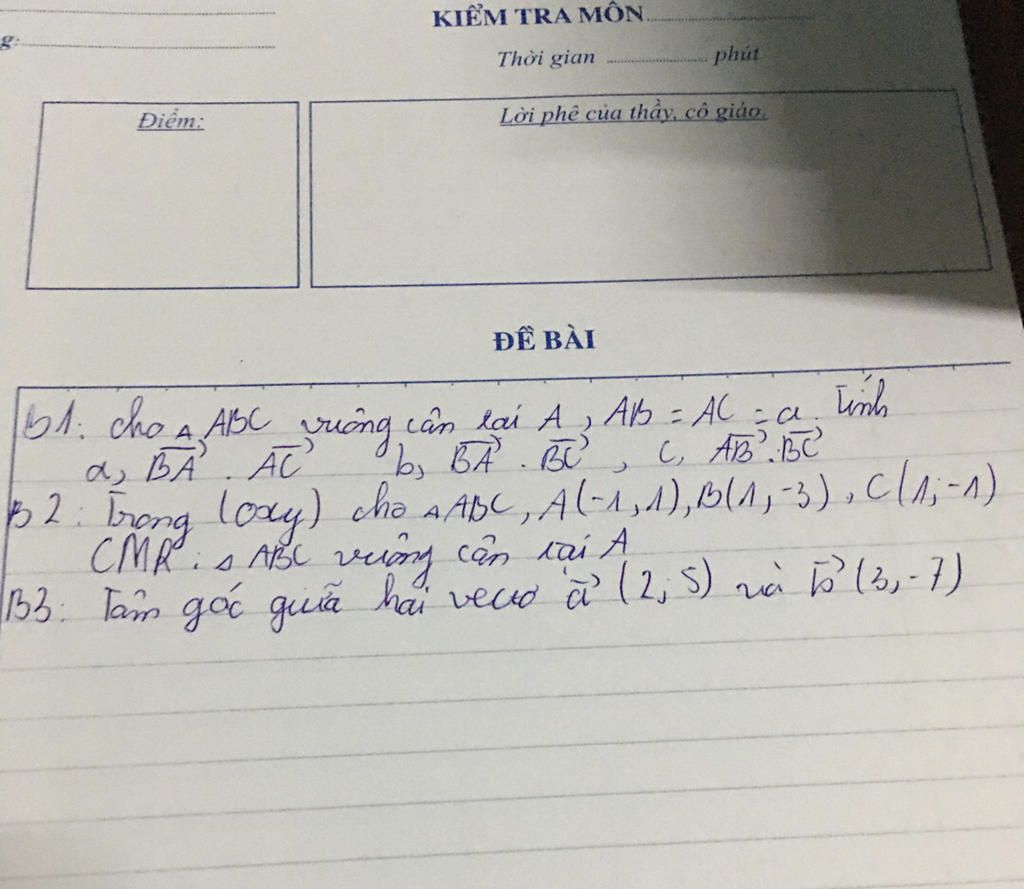 KIỂM TRA MÔN
g:
Thời gian phút
Điểm:
Lời phê của thầy, cô giáo.
ĐỀ BÀI
B1: cho △ ABC vuông cân tại A, AB = AC = a. Tính
a, BA→ . AC→ b, BA→ . BC→ , c, AB→ . BC→
B2: Trong (oxy) cho △ ABC, A(-1,1), B(1,-3), C(1;-1)
CMR: △ ABC vuông cân tại A
B3: Tìm góc giữa hai vectơ a→ (2;5) và b→ (3,-7)